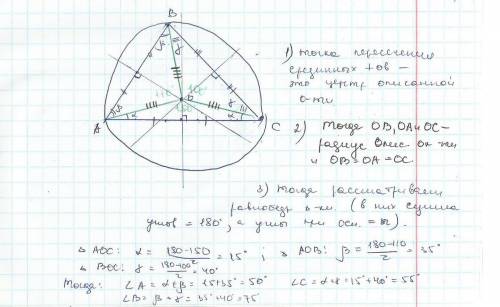 B
A
C
β
γ
α
α
γ
1) точка пересечения
срединных ⊥ов –
это центр описанной
о-ти
2) Тогда OB, OA и OC –
радиус опис ок-ти
и OB = OA = OC.
3) Тогда рассматриваем
равнобедр. Δ-ки. (в них сумма
углов = 180°, а углы при осн. =).
Δ AOC: α = 180-150/2 = 15° ; Δ AOB: β = 180-110/2 = 35°
Δ BOC: γ = 180-100°/2 = 40°
Тогда: ∠A = α+β = 15+35° = 50° ∠C = α+γ = 15+40° = 55°
∠B = β+γ = 35°+40° = 75